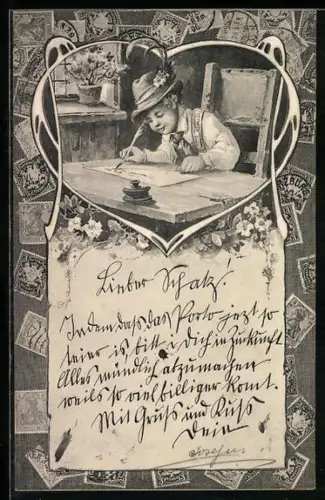 Lieber Schatz!
Indem dass das Porto jezt so
teier is, bitt i Dich in Zukunft
Alles mündlich abzumachen
weils so viel billiger komt.
Mit Gruss und Kuss
Dein